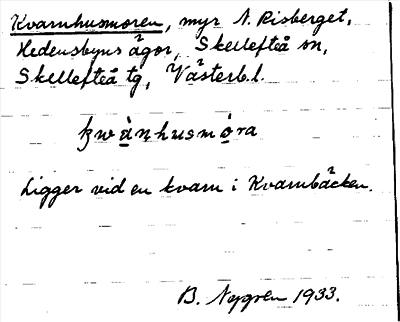 Kvarnhusmoren, myr N. Risberget,
Hedensbyns ägor, Skellefteå sn,
Skellefteå tg, Västerb. l.
kwà̱ṇhusmó̱ra
Ligger vid en kvarn i Kvarnbäcken.
B. Nygren 1933.